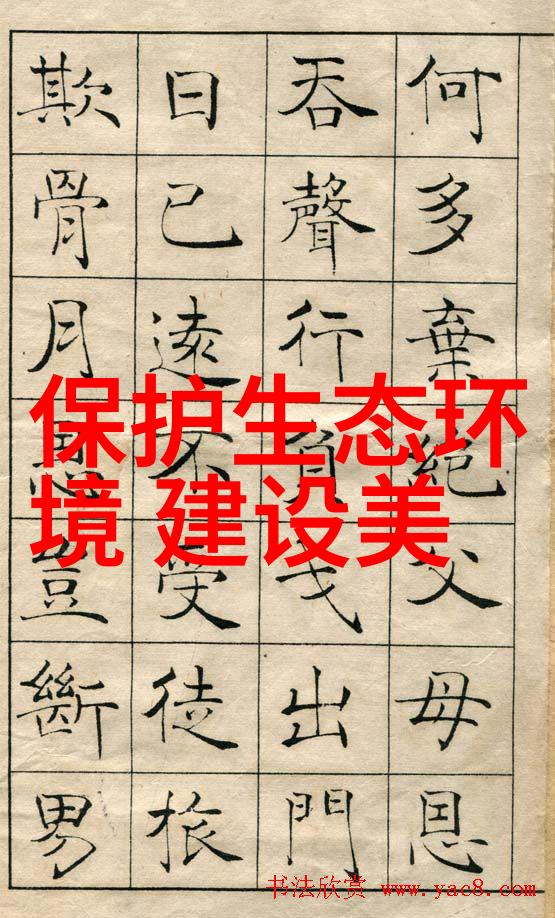 何多棄絕父母恩
吞聲行負戈出門
日已遠不受徒旅
欺骨月恩豈斷男
保护生态环
境 建设美
书法欣赏 www.yac8.com